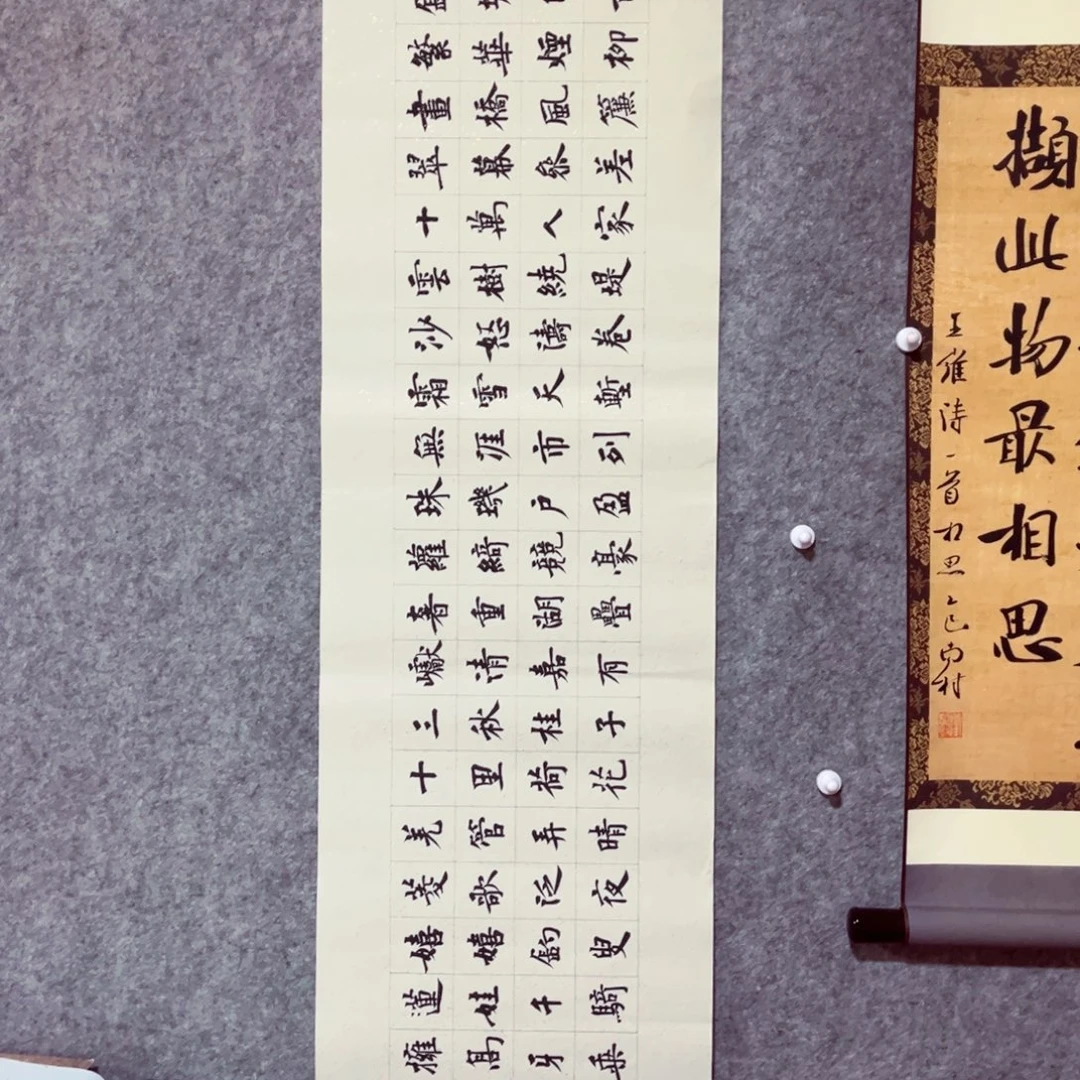 繁華煙柳
畫橋風簾
翠幕參差
十萬人家
雲樹繞堤
沙怒濤卷
霜雪天塹
無涯市列
珠璣户盈
蘿綺競豪
奢重湖疊
巘清嘉有
三秋桂子
十里荷花
羌管弄晴
菱歌泛夜
嬉嬉釣叟
蓮娃千騎
擁高牙乘
擷此物最相思
王維詩一首相思乙巳